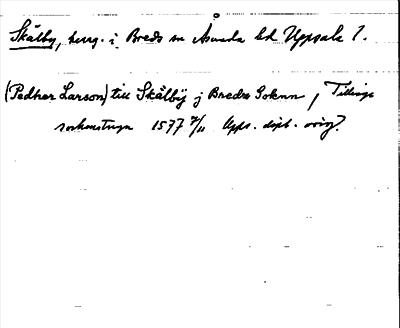 Skälby, herrg. i Breds sn Åsunda hd Uppsala l.
(Pedher Larson) till Skälbÿ j Bredz Soknn, Tillinge
1577 7/11 Upps. dipl. orig.